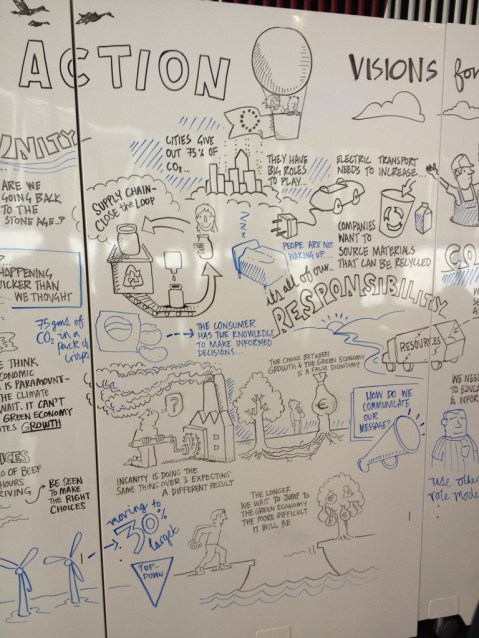 ACTION
VISIONS for
UNITY
ARE WE
GOING BACK
TO THE
STONE AGE..?
CITIES GIVE
OUT 75% OF
CO₂...
THEY HAVE
BIG ROLES
TO PLAY...
ELECTRIC TRANSPORT
NEEDS TO INCREASE.
SUPPLY CHAIN-
CLOSE THE LOOP
ZZZ
PEOPE ARE NOT
WAKING UP....
COMPANIES
WANT TO
SOURCE MATERIALS
THAT CAN BE RECYCLED
HAPPENING
UICKER THAN
WE THOUGHT
it's all of our..
RESPONSIBILITY
CO
75gms of
CO₂ in a
pack of
crisps
THE CONSUMER
HAS THE KNOWLEDGE
TO MAKE INFORMED
DECISIONS...
RESOURCES
E THINK
ONOMIC
IS PARAMOUNT-
THE CLIMATE
WAIT. IT CAN'T
GREEN ECONOMY
ATES GROWTH
THE CHOICE BETWEEN
GROWTH & THE GREEN ECONOMY
IS A FALSE DICHOTOMY
?
HOW DO WE
COMMUNICATE
OUR
MESSAGE?
WE NEED
TO EDUCA
& INFOR
UCES
O OF BEEF
HOURS
RIVING
BE SEEN
TO MAKE
THE RIGHT
CHOICES
INCANITY IS DOING THE
SAME THING OVER & EXPECTING
A DIFFERENT RESULT
use other
role mode
moving to
30%
target
TOP-
DOWN
THE LONGER
WE WAIT TO JUMP TO
THE GREEN ECONOMY
THE MORE DIFFICULT
IT WILL BE